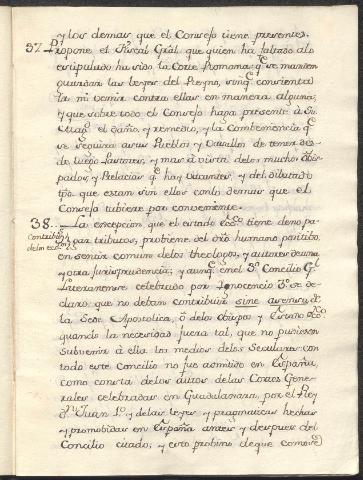 y los demas que el Consejo tiene presentes.
37. Propone el Fiscal Gral que quien ha faltado alo
estipulado ha sido la Corte Romana qe. se manden
guardar las leyes del Reyno, sin qe. consienta
ir ni venir contra ellas en manera alguna,
y que sobre todo el Consejo haga presente à Su
Magd. el daño, y remedio, y la Combeniencia qe.
se seguira à sus Pueblos y Vasallos de tener des-
de luego Pastores, y mas à vista delos muchos Obis-
pados, y Prelacias qe. hay vacantes, y del dilatado
tpo. que estan sin ellos con lo demas que el
Consejo tubiere por conveniente.
38. La excepcion, que el estado ecco. tiene de no pa-
Contribuzn.
delos eccos.
gar tributos, probiene del dro humano positibo,
en sentir comun delos theologos, y autores de una
y otra Jurisprudencia; y aunqe. en el 3o. Concilio Gl.
Lateranense celebrado por Inocencio 3o. se de-
claro que no deban contribuir sine asensu de
la Sede Apostolica, ò delos obispos y Clero
quando la necesidad fuera tal, que no pudiesen
subvenir à ella los medios delos Seculares con
todo este Concilio no fue admitido en España,
como consta delos autos delas Cortes Gene-
rales celebradas en Guadalaxara, por el Rey
Dn. Juan 1o. y delas leyes y pragmaticas hechas
y promobidas en España antes y despues del
Concilio citado; y esto probino de que como se